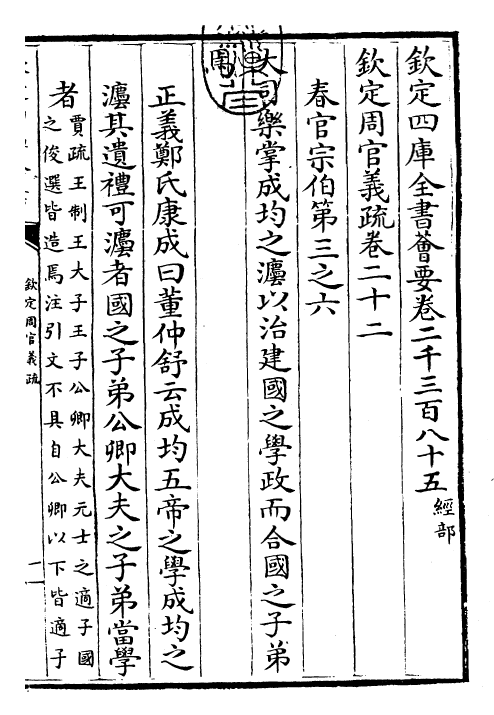 欽定四庫全書薈要卷二千三百八十五 經部
欽定周官義疏卷二十二
春官宗伯第三之六
大司樂掌成均之灋以治建國之學政而合國之子弟
正義鄭氏康成曰董仲舒云成均五帝之學成均之
灋其遺禮可灋者國之子弟公卿大夫之子弟當學
者
賈疏王制王大子王子公卿大夫元士之適子國
之俊選皆造焉注引文不具自公卿以下皆適子
欽定周官義疏